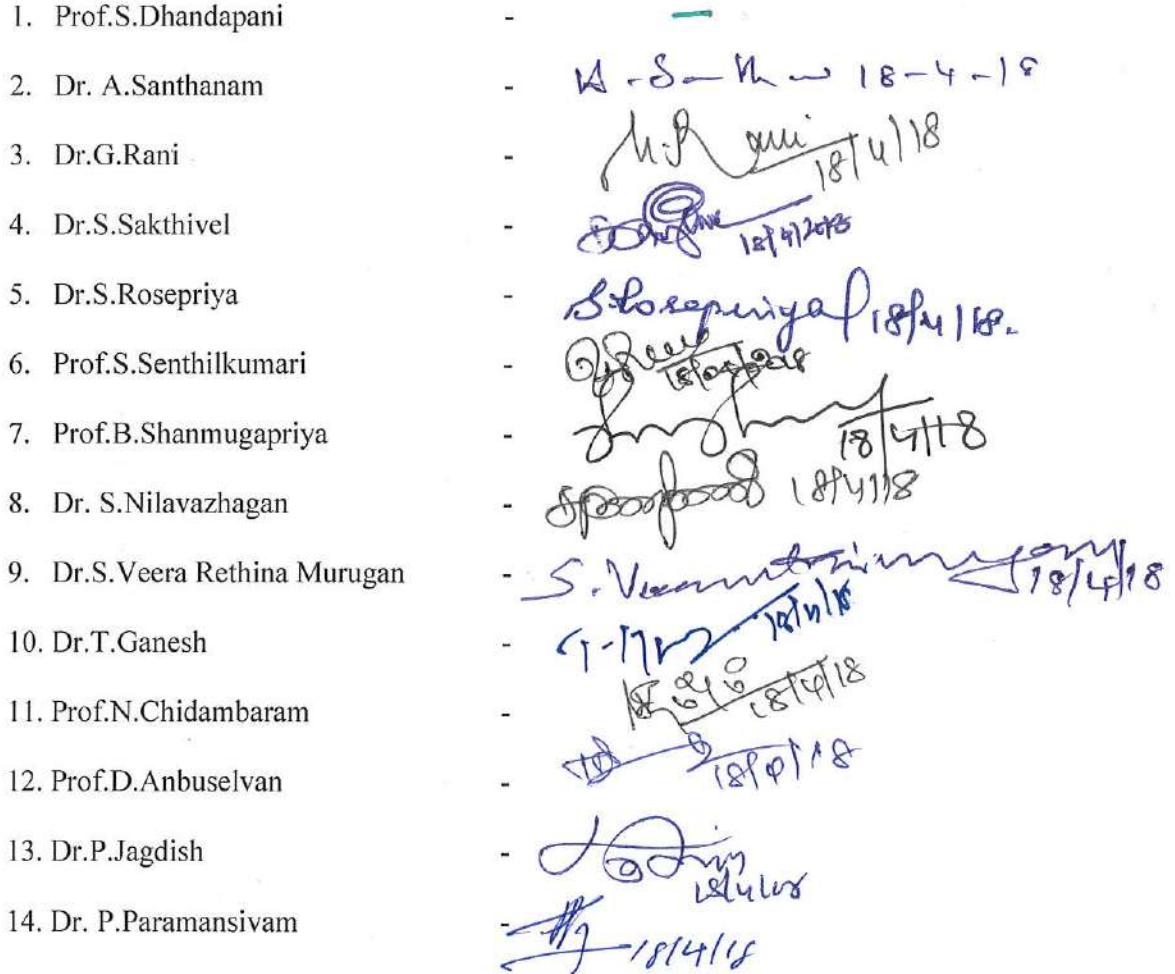 1. Prof.S.Dhandapani - —
2. Dr. A.Santhanam - 18-4-18
3. Dr.G.Rani - 18/4/18
4. Dr.S.Sakthivel - 18/4/2018
5. Dr.S.Rosepriya - S.Rosepriya 18/4/18.
6. Prof.S.Senthilkumari - 18/04/2018
7. Prof.B.Shanmugapriya - 18/4/18
8. Dr. S.Nilavazhagan - 18/4/18
9. Dr.S.Veera Rethina Murugan - 18/4/18
10. Dr.T.Ganesh - 18/4/18
11. Prof.N.Chidambaram - 18/4/18
12. Prof.D.Anbuselvan - 18/4/18
13. Dr.P.Jagdish -
14. Dr. P.Paramansivam - 18/4/18